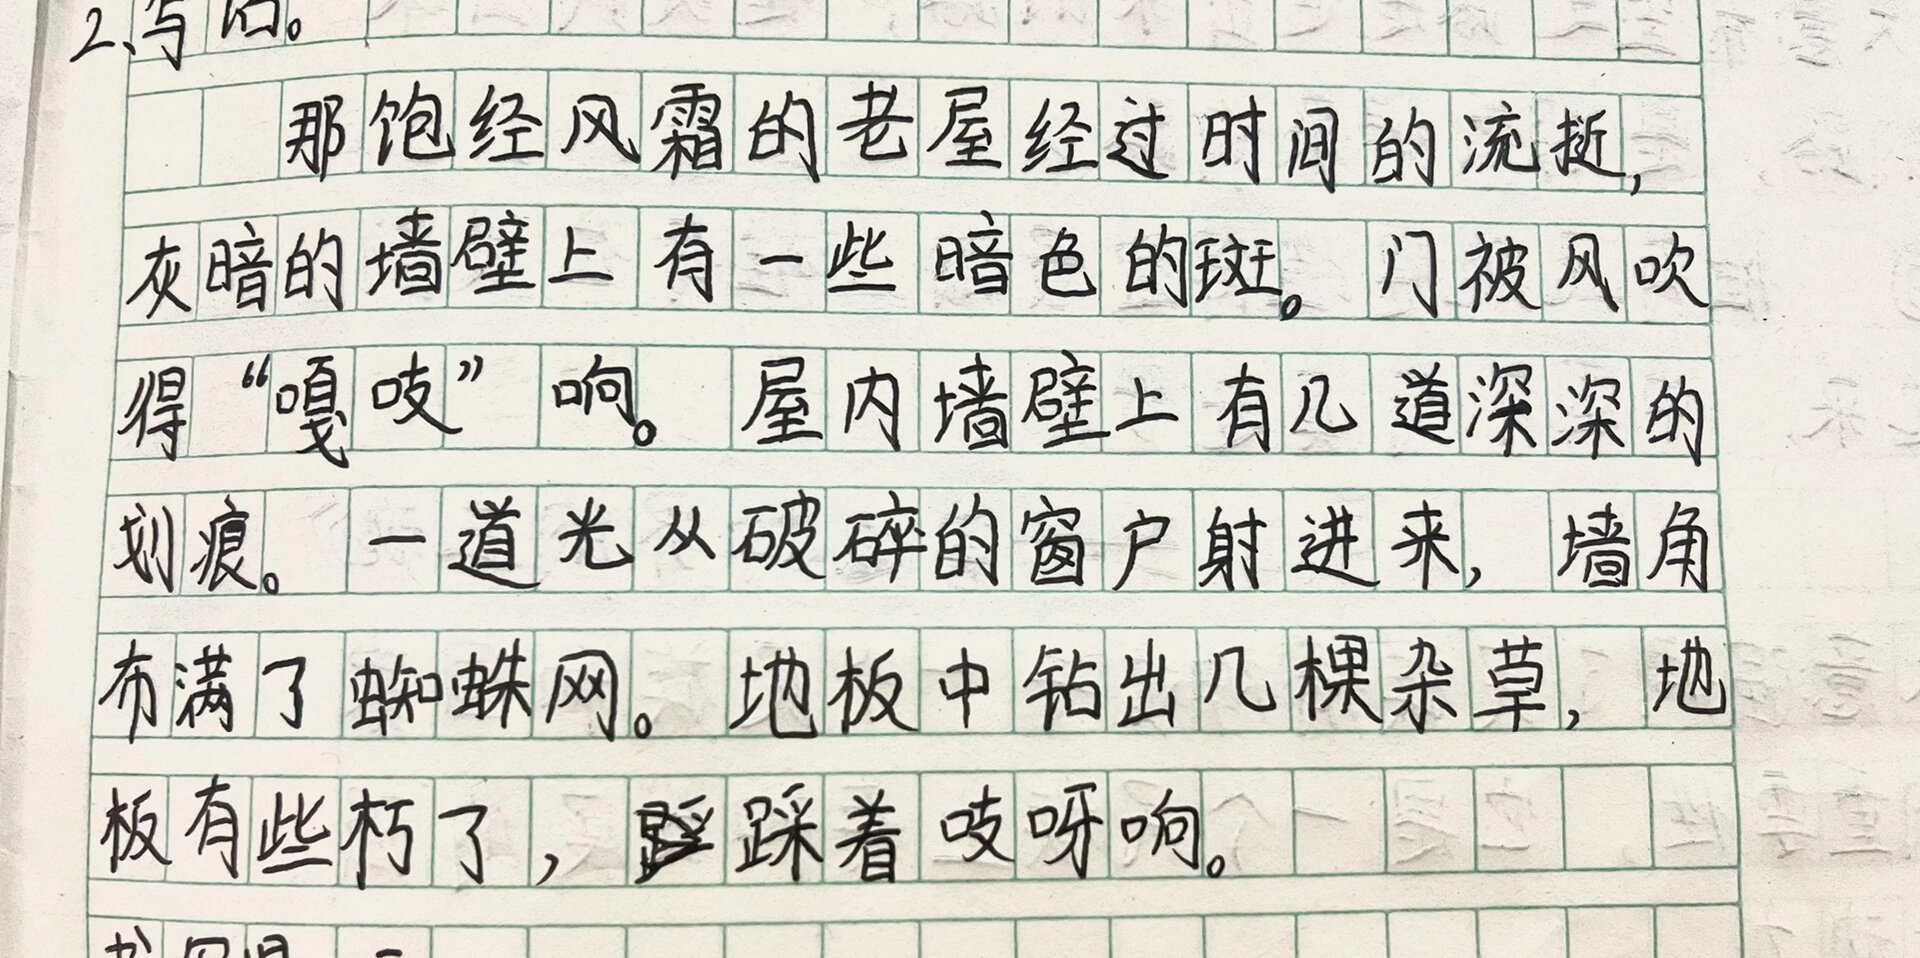 2、写话。
那饱经风霜的老屋经过时间的流挺,
灰暗的墙壁上有一些暗色的斑。门被风吹
得“嘎吱”响。屋内墙壁上有几道深深的
划痕。一道光从破碎的窗户射进来,墙角
布满了蜘蛛网。地板中钻出几棵杂草,地
板有些朽了,踩着吱呀响。